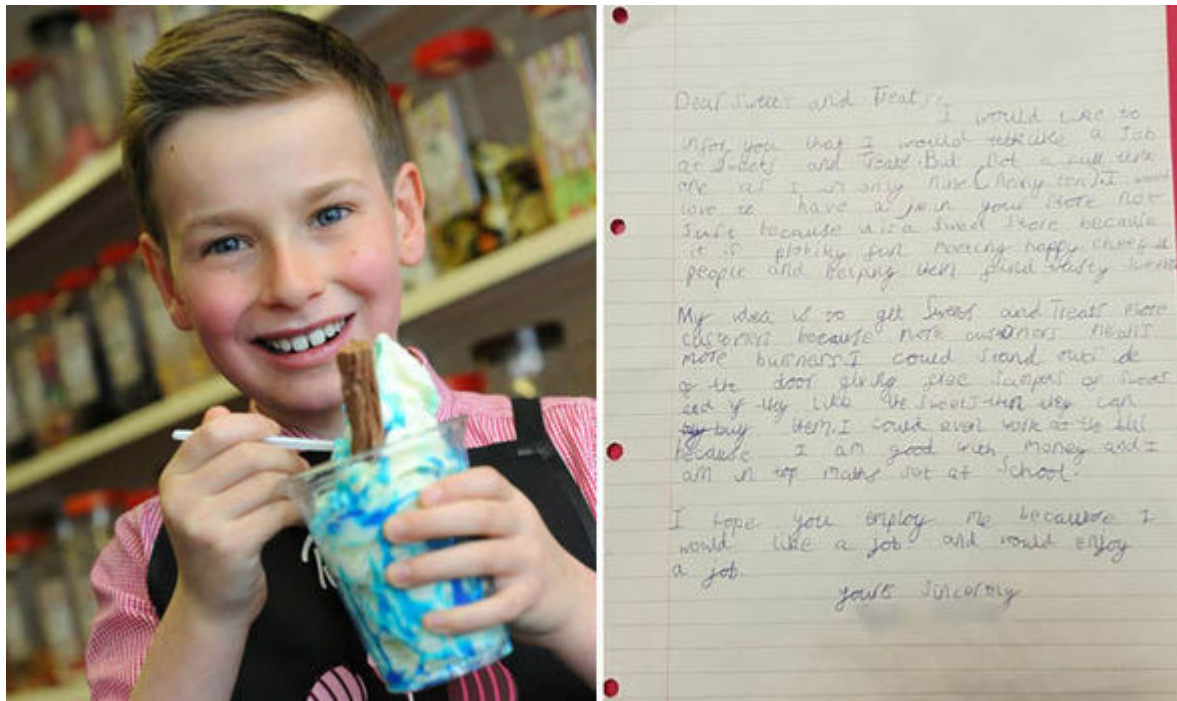 Dear Sweets and Treats,
I would like to
infor you that I would like a Job
at Sweets and Treats. But not a full time
one as I am only nine (nearly ten). I would
love to have a in your store not
Just because it is a sweet store because
it is fun meeting happy cheerful
people and helping them find tasty sweets
My idea is to get Sweets and Treats more
customers because more customers means
more business. I could stand outside
of the door giving free sampels of sweets
and if they like the sweets then they can
buy them. I could even work at the till
because I am good with money and I
am in top maths set at School.
I hope you employ me because I
would like a job and would enjoy
a job.
yours Sincerely